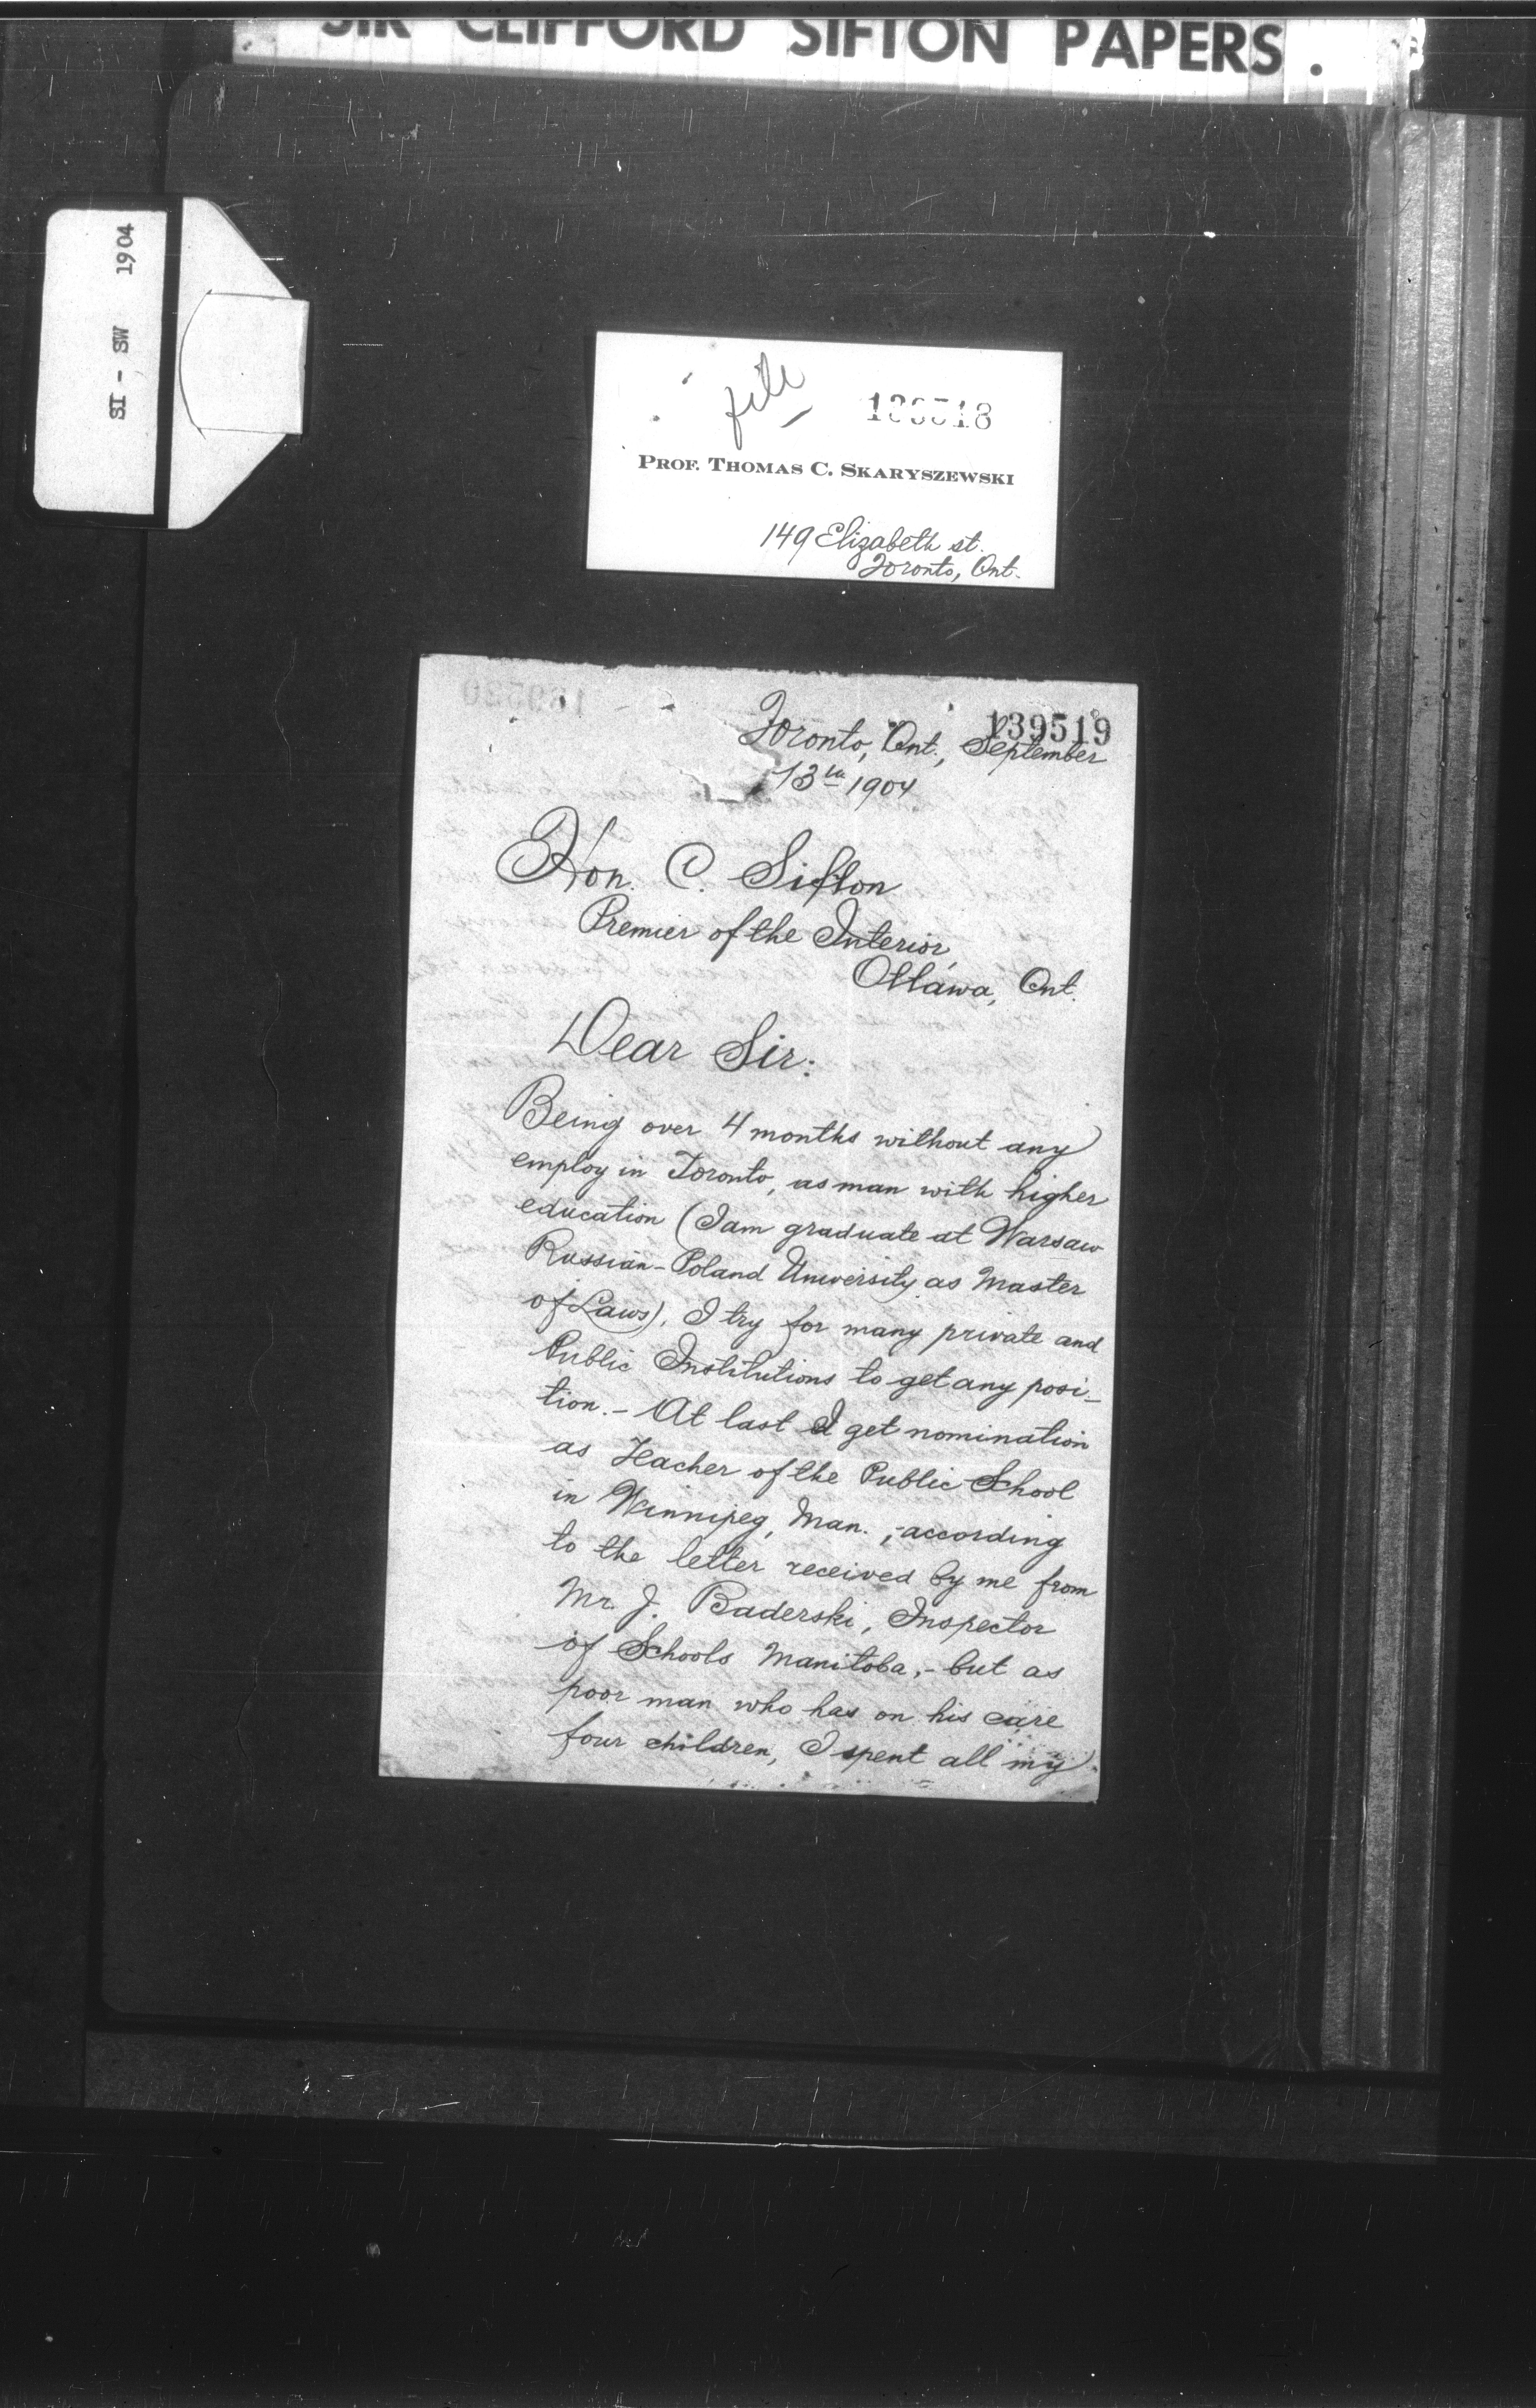 SIR CLIFFORD SIFTON PAPERS.
SI - SW 1904
file
PROF. THOMAS C. SKARYSZEWSKI
149 Elizabeth st.
Toronto, Ont.
139519
Toronto, Ont., September
13th 1904
Hon. C. Sifton
Premier of the Interior,
Ottawa, Ont.
Dear Sir:
Being over 4 months without any
employ in Toronto, as man with higher
education (I am graduate at Warsaw
Russian-Poland University as Master
of Laws), I try for many private and
Public Institutions to get any posi-
tion. - At last I get nomination
as Teacher of the Public School
in Winnipeg, Man., - according
to the letter received by me from
Mr. J. Baderski, Inspector
of Schools Manitoba, - but as
poor man who has on his care
four children, I spent all my